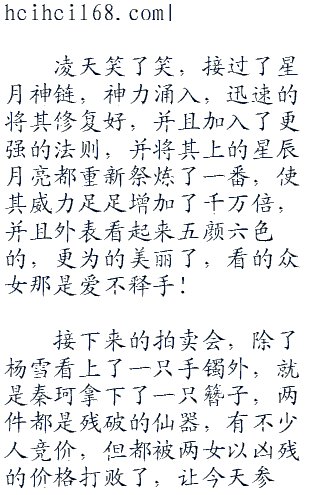 hcihci168.com|
凌天笑了笑，接过了星
月神链，神力涌入，迅速的
将其修复好，并且加入了更
强的法则，并将其上的星辰
月亮都重新祭炼了一番，使
其威力足足增加了千万倍，
并且外表看起来五颜六色
的，更为的美丽了，看的众
女那是爱不释手！
接下来的拍卖会，除了
杨雪看上了一只手镯外，就
是秦珂拿下了一只簪子，两
件都是残破的仙器，有不少
人竞价，但都被两女以凶残
的价格打败了，让今天参